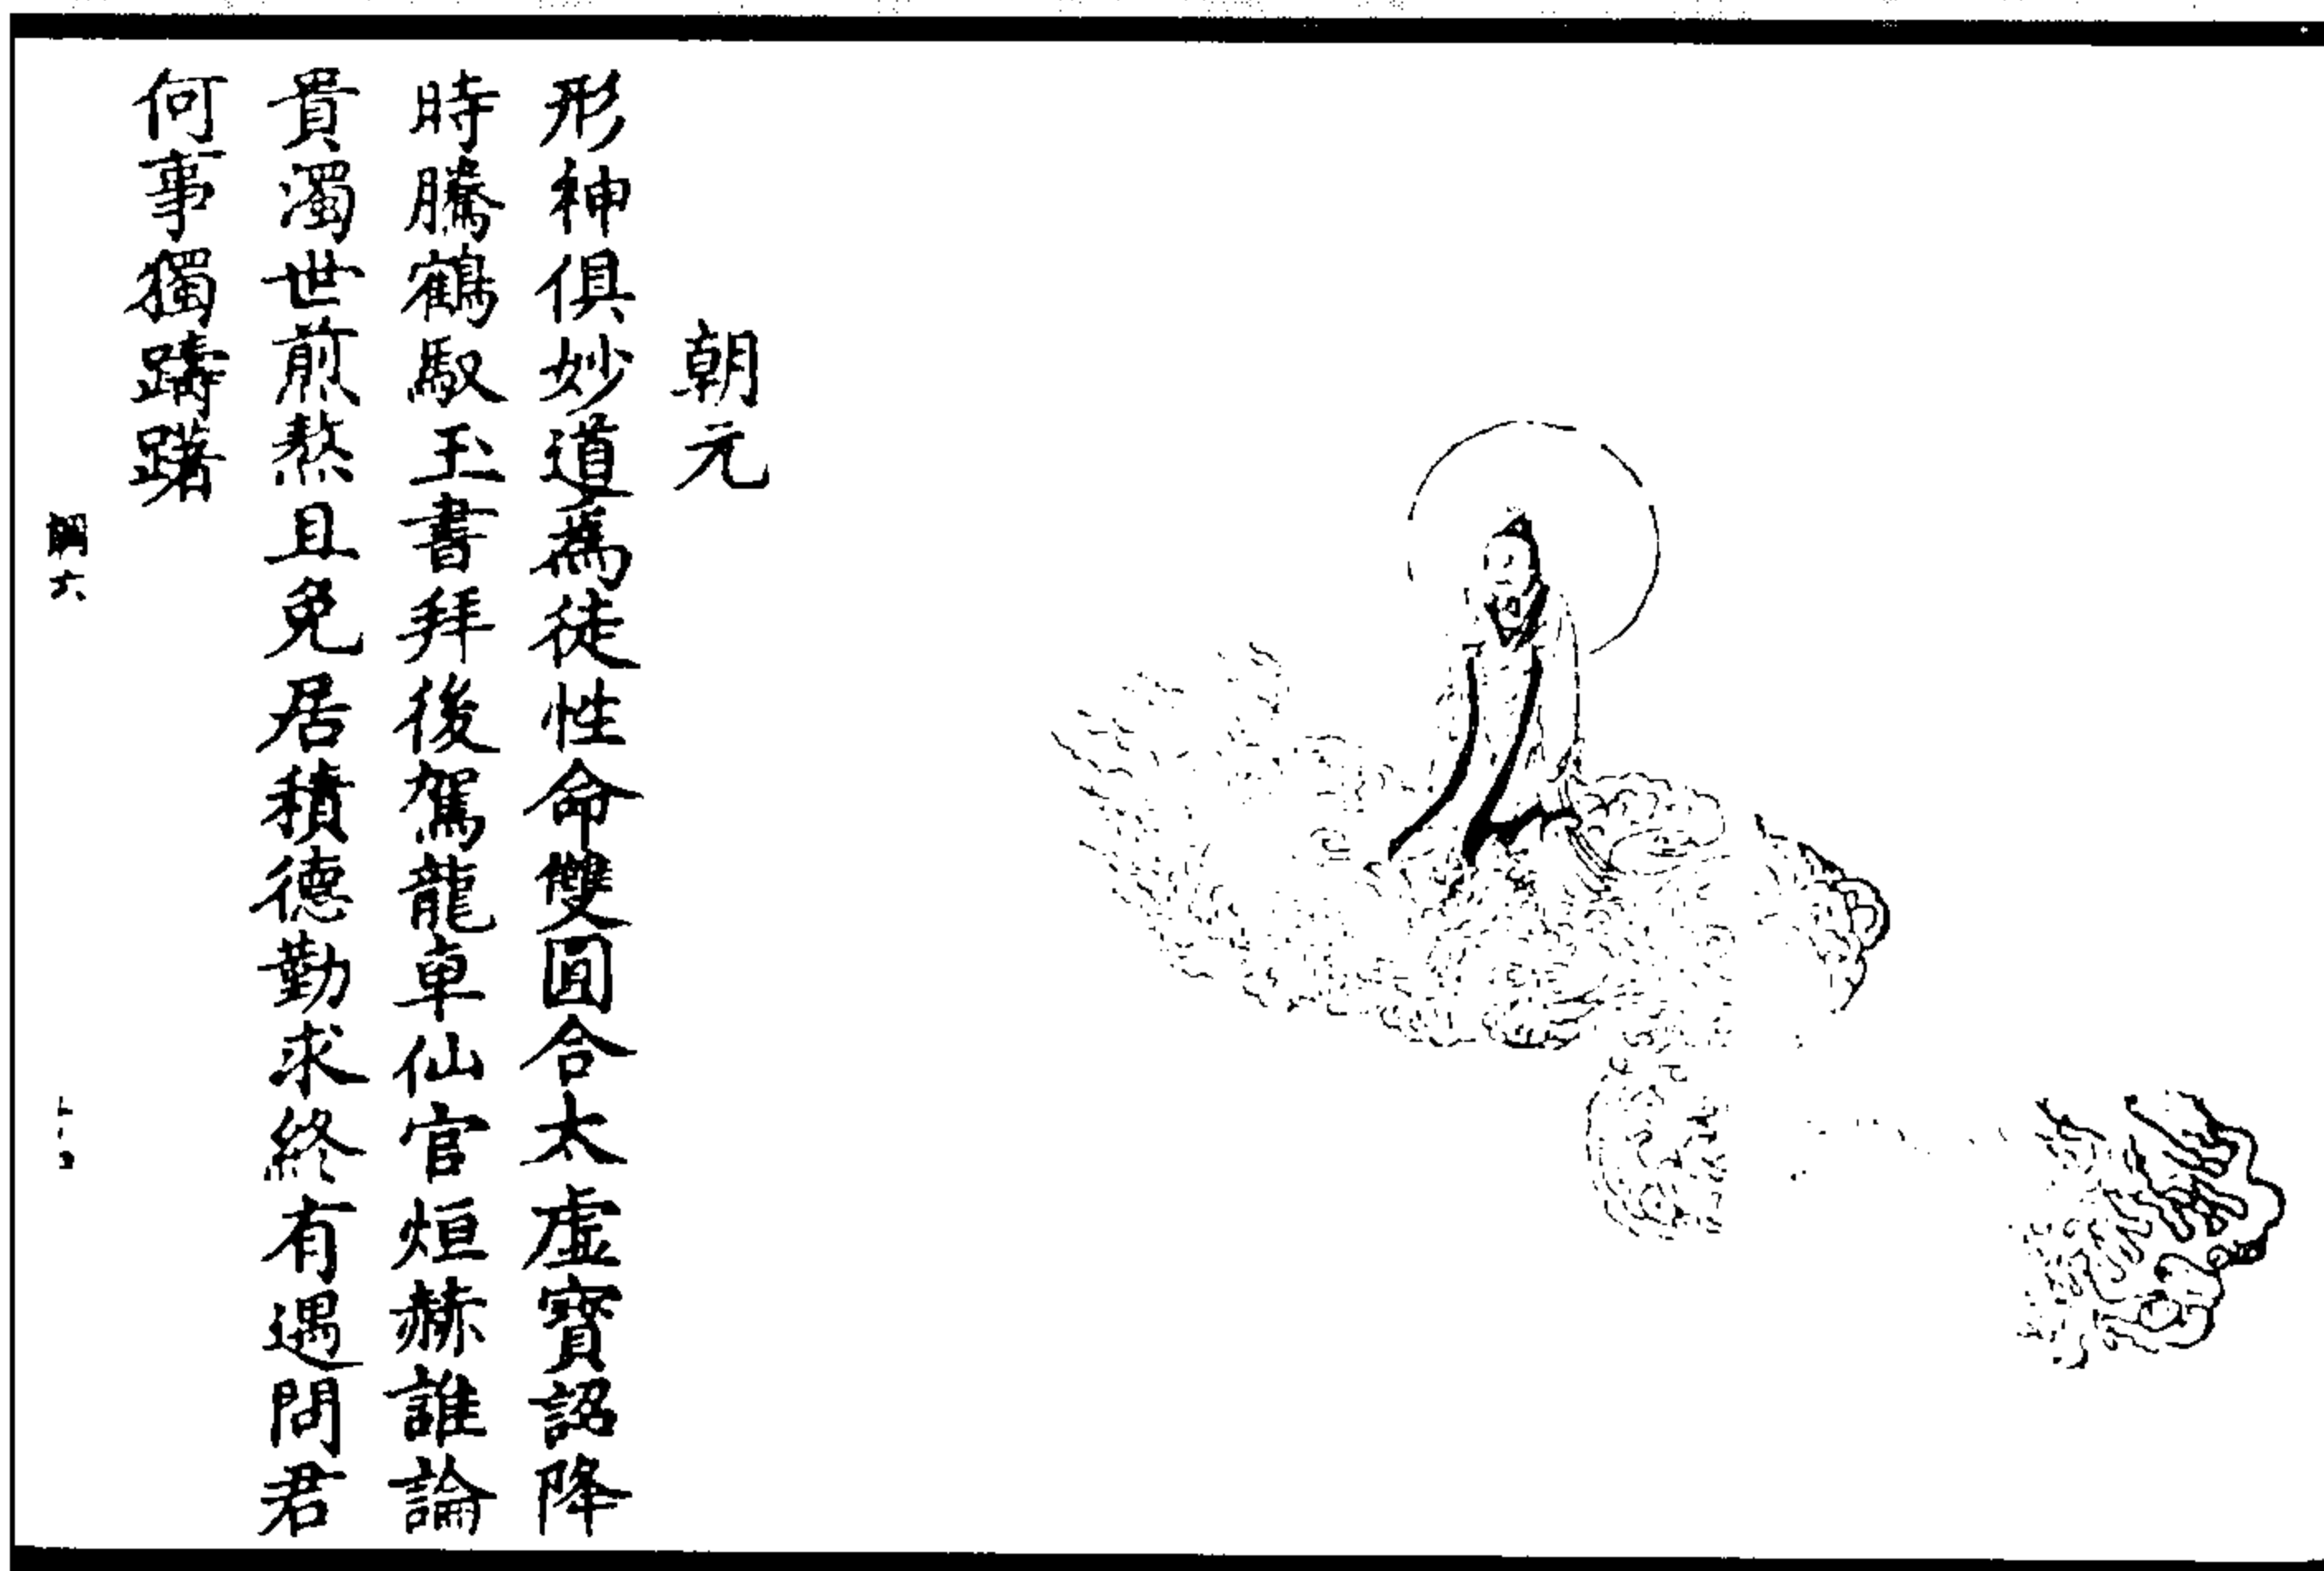 朝元
形神俱妙道為徒性命雙圓合太虛寶詔降
時騰鶴馭玉書拜後駕龍車仙官烜赫誰論
貴濁世煎熬且免居積德勤求終有遇問君
何事獨躊躇
六